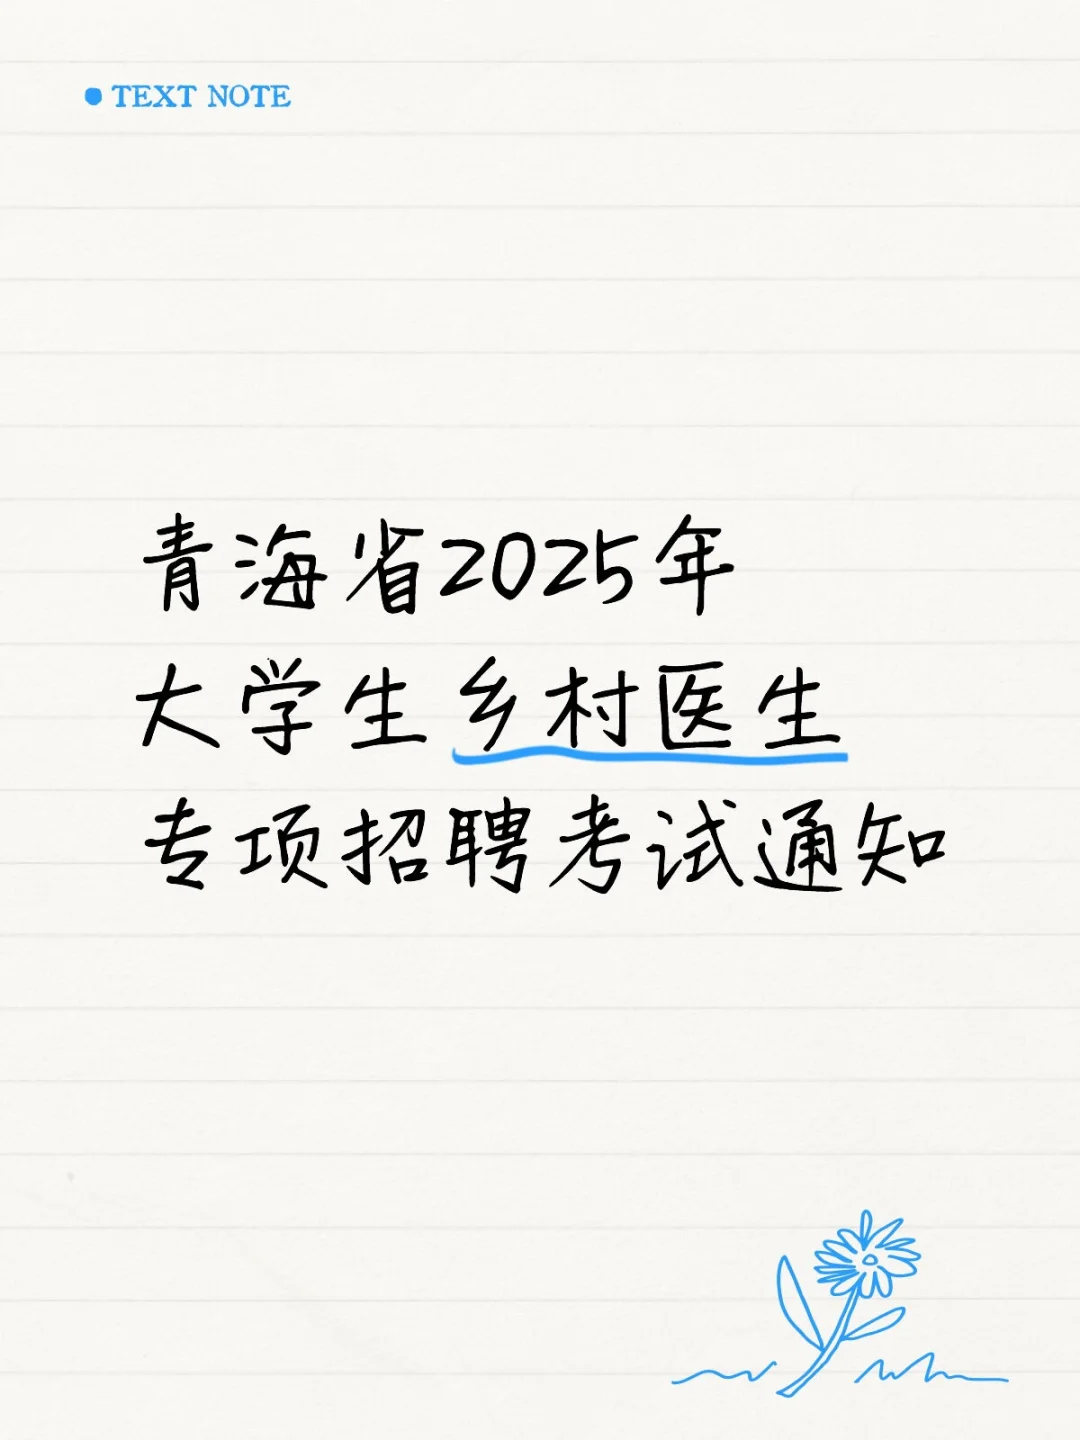 TEXT NOTE
青海省2025年
大学生乡村医生
专项招聘考试通知